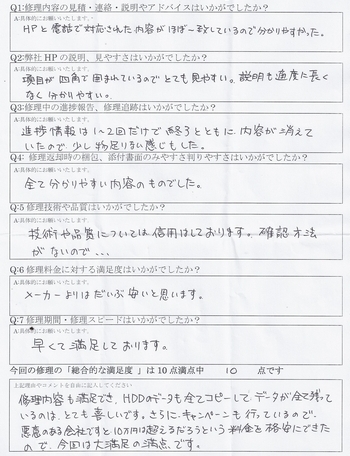 Q1:修理内容の見積・連絡・説明やアドバイスはいかがでしたか？
A:具体的にお願いいたします。
HPと電話で対応された内容がほぼ一致しているので分かりやすかった。
Q2:弊社HPの説明、見やすさはいかがでしたか？
A:具体的にお願いいたします。
項目が四角で囲まれているのでとても見やすい。説明も適度に長く
なく分かりやすい。
Q3:修理中の進捗報告、修理追跡はいかがでしたか？
A:具体的にお願いいたします。
進捗情報は1〜2回だけで終ろとともに内容が消えて
いたので少し物足りない感じもした。
Q4: 修理返却時の梱包、添付書面のみやすさ判りやすさはいかがでしたか？
A:具体的にお願いいたします。
全て分かりやすい内容のものでした。
Q:5 修理技術や品質はいかがでしたか？
A:具体的にお願いいたします。
技術や品質については信用はしております。確認方法
がないので、、、
Q:6 修理料金に対する満足度はいかがでしたか？
A:具体的にお願いいたします。
メーカーよりはだいぶ安いと思います。
Q:7 修理期間・修理スピードはいかがでしたか？
A:具体的にお願いいたします。
早くて満足しております。
今回の修理の「総合的な満足度 」は 10 点満点中 10 点です
上記理由やコメントを自由に記入してください
修理内容も満足でき、HDDのデータも全てコピーしてデータが全て残って
いるのは、とても喜しいです。さらに、キャンペーンも行っているので、
悪意のある会社ですと10万円は超えるだろうという料金を格安にできた
ので、今回は大満足の満点です。